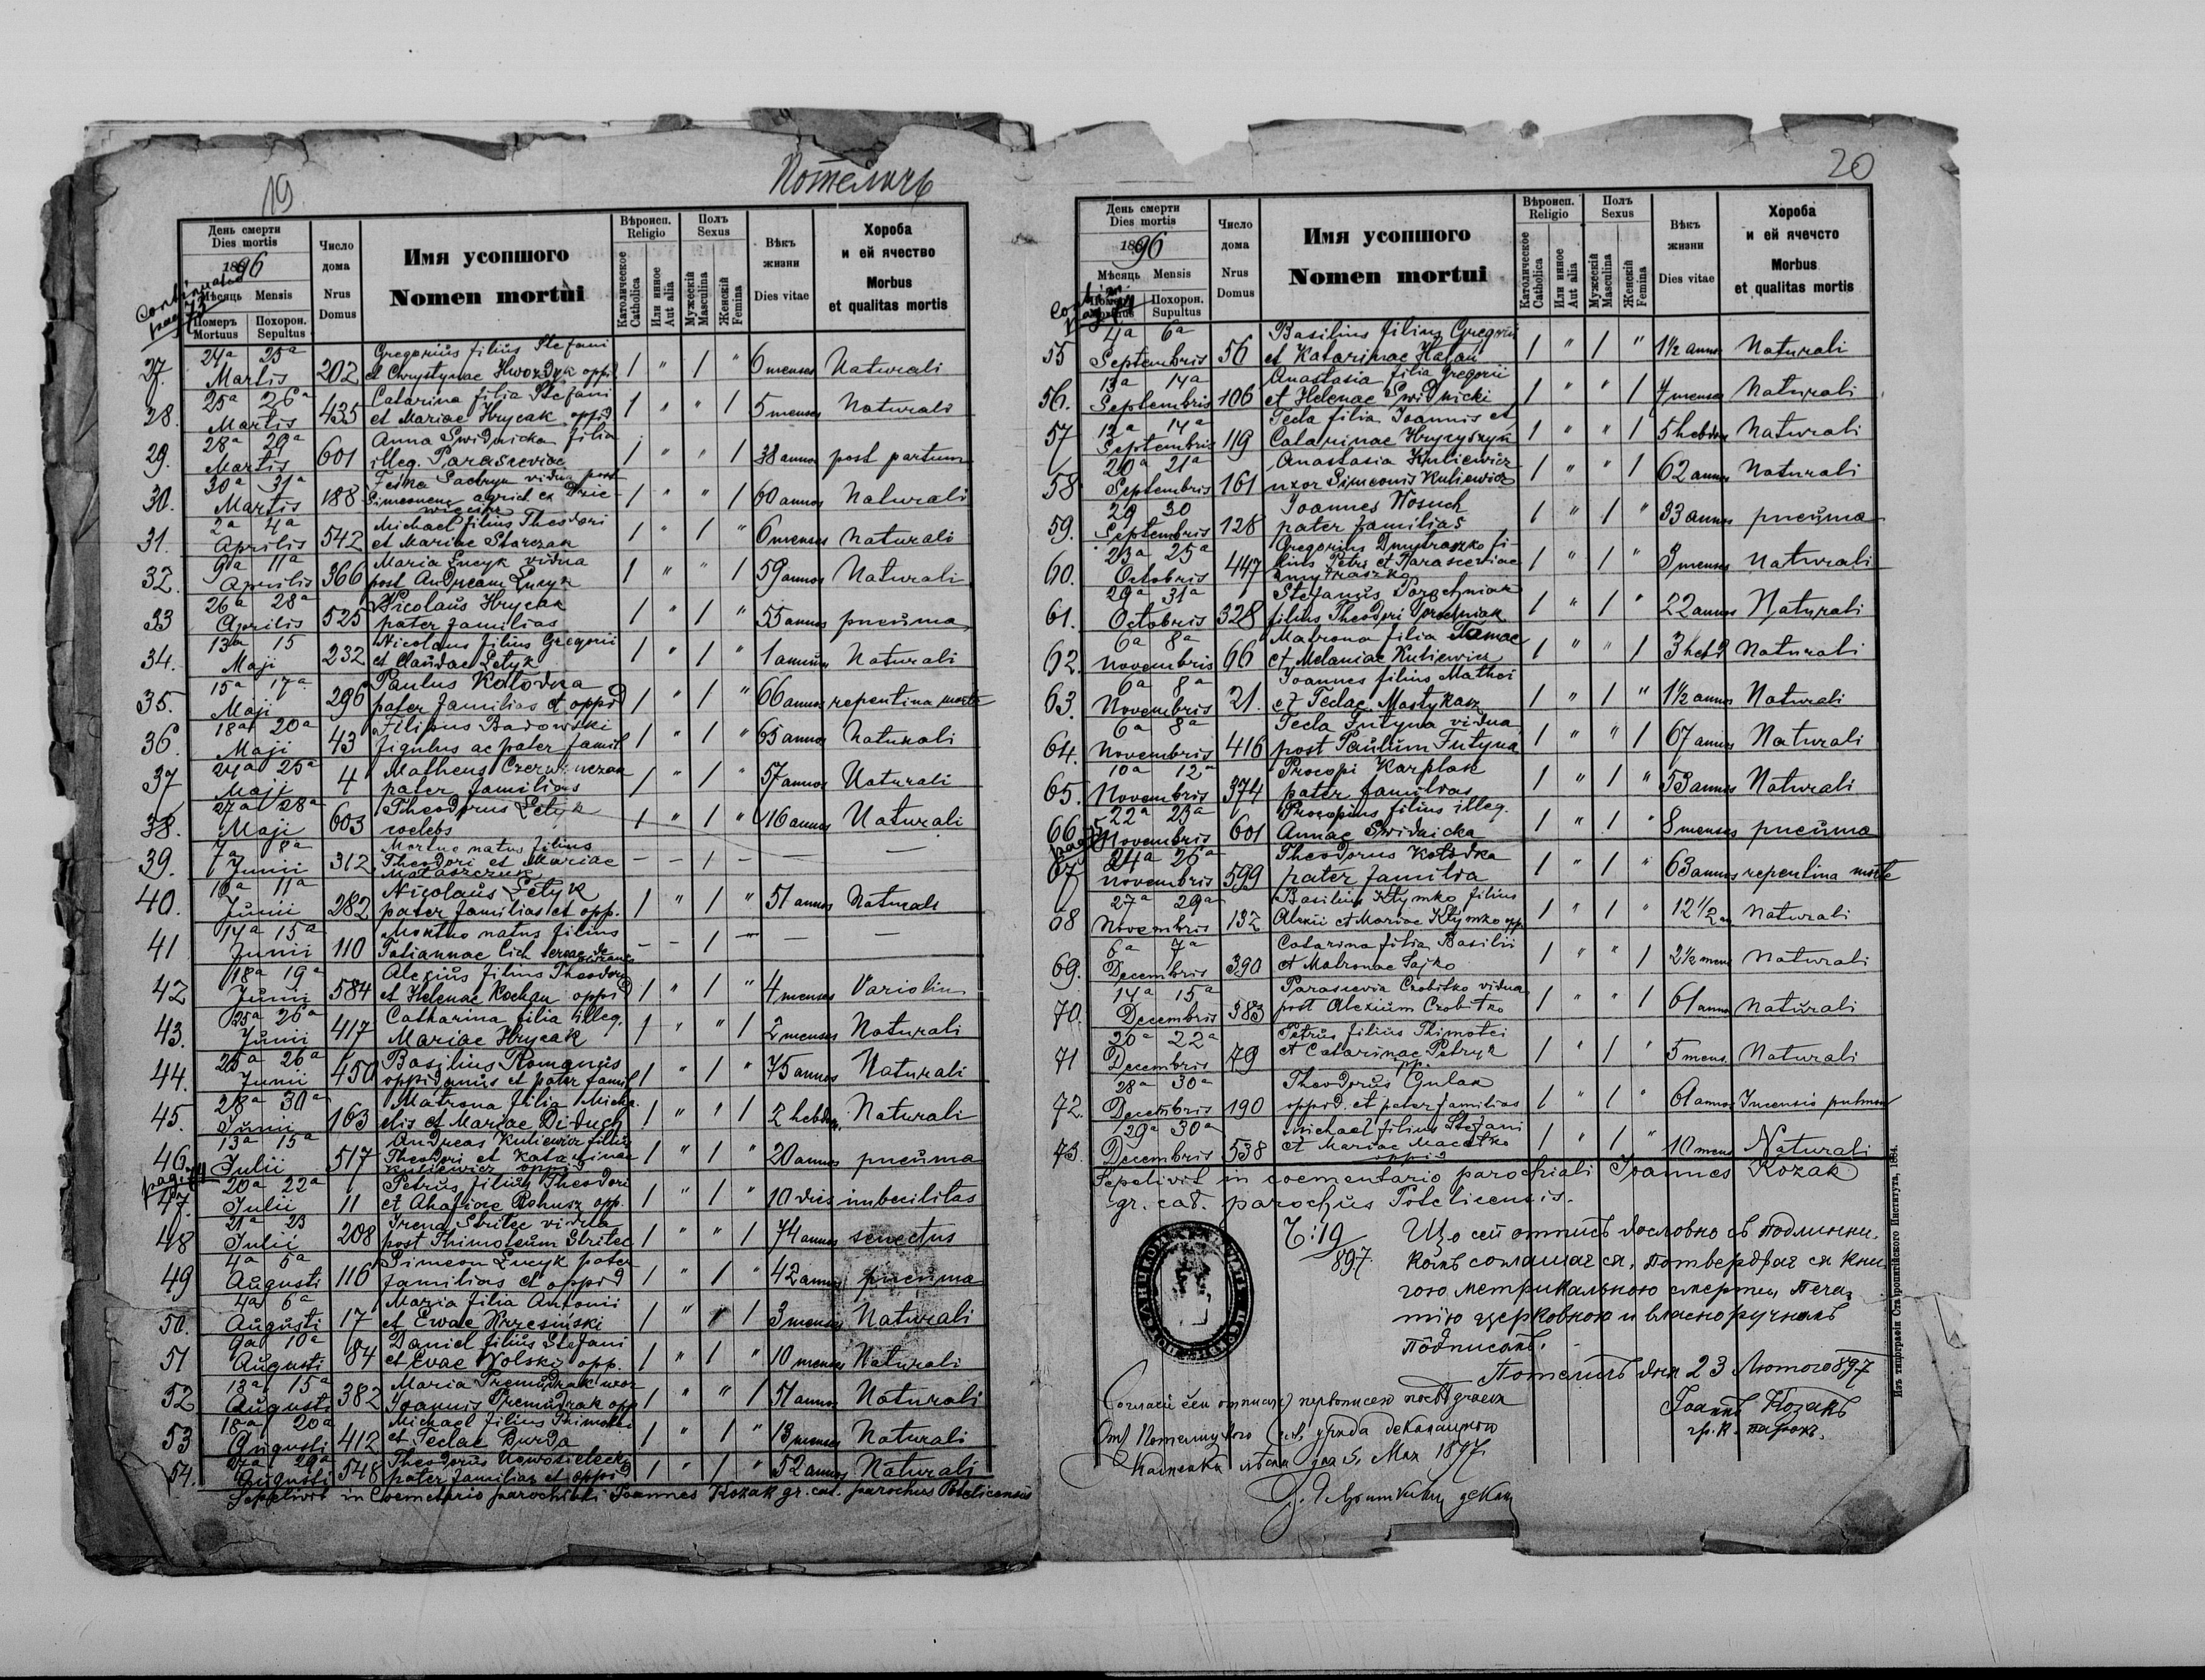 19
Потеличь
День смерти
Dies mortis
1896
Мѣсяць Mensis
Померъ Похорон.
Mortuus Sepultus
Число
дома
Nrus
Domus
Имя усопшого
Nomen mortui
Вѣроисп.
Religio
Католическое
Catholica
Или инное
Aut alia
Полъ
Sexus
Мужескій
Masculina
Женскій
Femina
Вѣкъ
жизни
Dies vitae
Хороба
и ей ячество
Morbus
et qualitas mortis
continuatio
pag 73
27. 24a 25a Martis 202 Gregorius filius Stefani
et Chrystynae Hwozdyk oppid 1 " 1 " 6 menses Naturali
28. 25a 26a Martis 435 Catarina filia Stefani
et Mariae Hrycak oppid 1 " " 1 5 menses Naturali
29. 28a 29a Martis 601 Anna Swidnicka filia
illeg. Parasceviae 1 " " 1 38 annos post partum
30. 30a 31a Martis 188 vidua post
Simeonem agricol ex Dzie-
więcierz 1 " " 1 60 annos Naturali
31. 2a 4a Aprilis 542 Michael filius Theodori
et Mariae Starczak 1 " 1 " 6 menses Naturali
32. 9a 11a Aprilis 366 Maria Lucyk vidua
post Andream Lucyk 1 " " 1 59 annos Naturali
33 26a 28a Aprilis 525 Nicolaus Hrycak
pater familias 1 " 1 " 55 annos pneuma
34. 13a 15 Maji 232 Nicolaus filius Gregorii
et Claudae Letyk 1 " 1 " 1 annum Naturali
35. 15a 17a Maji 296 Paulus Kołodka
pater familias et oppid 1 " 1 " 66 annos repentina morte
36. 18a 20a Maji 43 Filipus Sadowski
figulus ac pater famil 1 " 1 " 65 annos Naturali
37 24a 25a Maji 4 Matheus Czerwinczak
pater familias 1 " 1 " 57 annos Naturali
38. 27a 28a Maji 603 Theodorus Letyk
coelebs 1 " 1 " 16 annos Naturali
39. 7a 8a Junii 312 Mortuo natus filius
Theodori et Mariae
Mataszczuk – – 1 – — —
40. 10a 11a Junii 282 Nicolaus Letyk
pater familias et opp. 1 " 1 " 51 annos Naturali
41 14a 15a Junii 110 Mortuo natus filius
Tatiannae Cich servae – – 1 – — —
42 18a 19a Junii 584 Alexius filius Theodori
et Helenae Kochan oppid 1 " 1 " 4 menses Variolin
43. 25a 26a Junii 417 Catharina filia illeg.
Mariae Hrycak 1 " " 1 2 menses Naturali
44. 25a 26a Junii 450 Basilius Romanus
oppidanus et pater famil 1 " 1 " 75 annos Naturali
45. 28a 30a Junii 163 Matrona filia Micha-
elis et Mariae Diduch 1 " " 1 2 hebdom. Naturali
46. 13a 15a Julii 517 Andreas Kuliewicz filius
Theodori et Katarinae
Kuliewicz oppid 1 " 1 " 20 annos pneuma
pag. 74
47. 20a 22a Julii 11 Petrus filius Theodori
et Ahafiae Rohusz opp. 1 " 1 " 10 dies imbecilitas
48 21a 23 Julii 208 Irena Strilec vidua
post Thimoteum Strilec 1 " " 1 74 annos senectus
49 4a 5a Augusti 116 Simeon Lucyk pater
familias et oppid 1 " 1 " 42 annos pneuma
50. 4a 6a Augusti 17 Maria filia Antonii
et Ewae Wrzesiński 1 " " 1 3 menses Naturali
51 9a 10a Augusti 84 Daniel filius Stefani
et Evae Wolski opp. 1 " 1 " 10 menses Naturali
52 13a 15a Augusti 382 Maria Premudrak uxor
Joannis Premudrak opp 1 " " 1 51 annos Naturali
53 18a 20a Augusti 412 Michael filius Thimotei
et Teclae Burda 1 " 1 " 13 menses Naturali
54. 27a 29a Augusti 548 Theodorus Nowosielecki
pater familias et oppid 1 " 1 " 52 annos Naturali
Sepelivit in Coemeterio parochiali Joannes Kozak gr. cat. parochus Potelicensis
20
День смерти
Dies mortis
1896
Мѣсяць Mensis
Похорон.
Supultus
Число
дома
Nrus
Domus
Имя усопшого
Nomen mortui
Вѣроисп.
Religio
Католическое
Catholica
Или инное
Aut alia
Полъ
Sexus
Мужескій
Masculina
Женскій
Femina
Вѣкъ
жизни
Dies vitae
Хороба
и ей ячечсто
Morbus
et qualitas mortis
55 4a 6a Septembris 56 Basilius filius Gregorii
et Katarinae Hałan 1 " 1 " 1½ annos Naturali
56. 13a 14a Septembris 106 Anastasia filia Gregorii
et Helenae Swidnicki 1 " " 1 7 menses Naturali
57 12a 14a Septembris 119 Tecla filia Joannis et
Catarinae Hryzyszyn 1 " " 1 5 hebdom Naturali
58 20a 21a Septembris 161 Anastasia Kuliewicz
uxor Simeonis Kuliewicz 1 " " 1 62 annos Naturali
59. 29 30 Septembris 128 Joannes Wosuch
pater familias 1 " 1 " 33 annos pneuma
60. 23a 25a Octobris 447 Gregorius Dmytraszko fi-
lius Petri et Parasceviae
Dmytraszko 1 " 1 " 8 menses Naturali
61. 29a 31a Octobris 328 Stefanus Porochniak
filius Theodori Porochniak 1 " 1 " 22 annos Naturali
62. 6a 8a Novembris 66 Matrona filia Tomae
et Melaniae Kuliewicz 1 " " 1 3 hebd Naturali
63. 6a 8a Novembris 21. Joannes filius Mathei
et Teclae Mostykasz 1 " 1 " 1½ annos Naturali
64. 6a 8a Novembris 416 Tecla Futyna vidua
post Paulum Futyna 1 " " 1 67 annos Naturali
65. 10a 12a Novembris 374 Procopi Karplak
pater familias 1 " 1 " 53 annos Naturali
66 22a 23a Novembris 601 Procopius filius illeg.
Annae Swidnicka 1 " 1 " 8 menses pneuma
67 24a 26a Novembris 599 Theodorus Kołodka
pater familia 1 " 1 " 63 annos repentina morte
68 27a 29a Novembris 132 Basilius Klymko filius
Alexii et Mariae Klymko opp 1 " 1 " 12½ Naturali
69. 6a 7a Decembris 390 Catarina filia Basilii
et Matronae Sajko 1 " " 1 2½ mens Naturali
70. 14a 15a Decembris 383 Parascevia Czobitko vidua
post Alexium Czobitko 1 " " 1 61 annos Naturali
71 20a 22a Decembris 79 Petrus filius Thimotei
et Catarinae Petryk
pp. 1 " 1 " 5 mens. Naturali
72. 28a 30a Decembris 190 Theodorus Cyulak
oppid. et pater familias 1 " 1 " 61 annos Incensio pulmon
73. 29a 30a Decembris 538 Michael filius Stefani
et Mariae Macełko
oppid 1 " 1 " 10 mens Naturali
Sepelivit in coementario parochiali Joannes Kozak
gr. cat. parochus Potelicensis.
Ч: 19
897.
Що сей отписъ дословно съ подлинни-
комъ соглашае ся, потверджае ся кни-
гою метрикальною смертеи, печа-
тію церковною и власноручнымъ
подписомъ.
Потеличъ дня 23 Лютого 897
Іоаннъ Козакъ
гр. к. парохъ.
Мая 1897.
Изъ типографіи Ставропигійского Института, 1884.